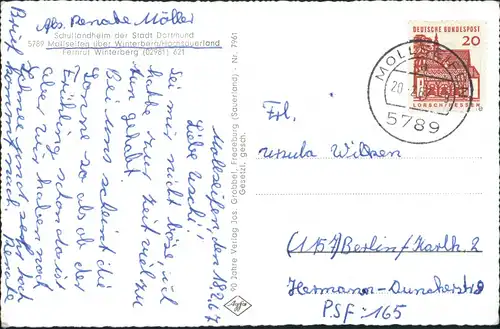 Abs. Renate Möller
Schullandheim der Stadt Dortmund
5789 Mollseifen über Winterberg/Hochsauerland
Fernruf Winterberg (02981) 621
Mollseifen, den 18.2.67
Liebe Uschi!
Sei mir nicht böse, ich
hatte zur Zeit viel zu
tun gehabt.
Bei uns scheint die
Sonne so als ob der
Frühling schon da ist
aber wir haben noch
Schnee und sehr hoch
Brief kommt nach. Renate
90 Jahre Verlag Jos. Grobbel, Fredeburg (Sauerland); Nr. 7961
Gesetzl. gesch.
DEUTSCHE BUNDESPOST
20
LORSCH/HESSEN
MOLLSEIFEN
20.-2.
5789
Frl.
Ursula Wilksen
(1157) Berlin/Karlh. 2
Hermann-Duncker-str
PSF: 165